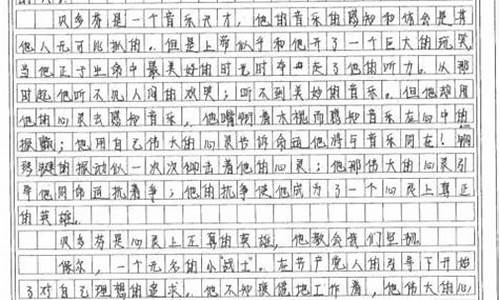 贝多芬是一个音乐天才，他的音乐的感知和体会是其
他人无可比拟的。但是上帝似乎和他开了一个巨大的玩笑，
当他正于生命中最美好的时光时夺走了他的听力。从那
时起他听不见人间的欢笑；听不到美妙的音乐。但他却用
他的心灵去感知音乐，他嘴咬着木棍而感知音乐在心中的
振颤；他用自己伟大的心灵告诉命运他将与音乐同在！钢
琴键的振动似一次次叩击着他的心灵；他那伟大的心灵引
导他同命运抗着争；他的抗争使他成为了一个心灵上真正
的英雄。
贝多芬是心灵上正真的英雄，他教会我们坚韧。
保尔，一个无名的小"战士"。在共产党人的引导下开始
了对自己理想的追求。他不知疲倦地工作着，他伟大的心